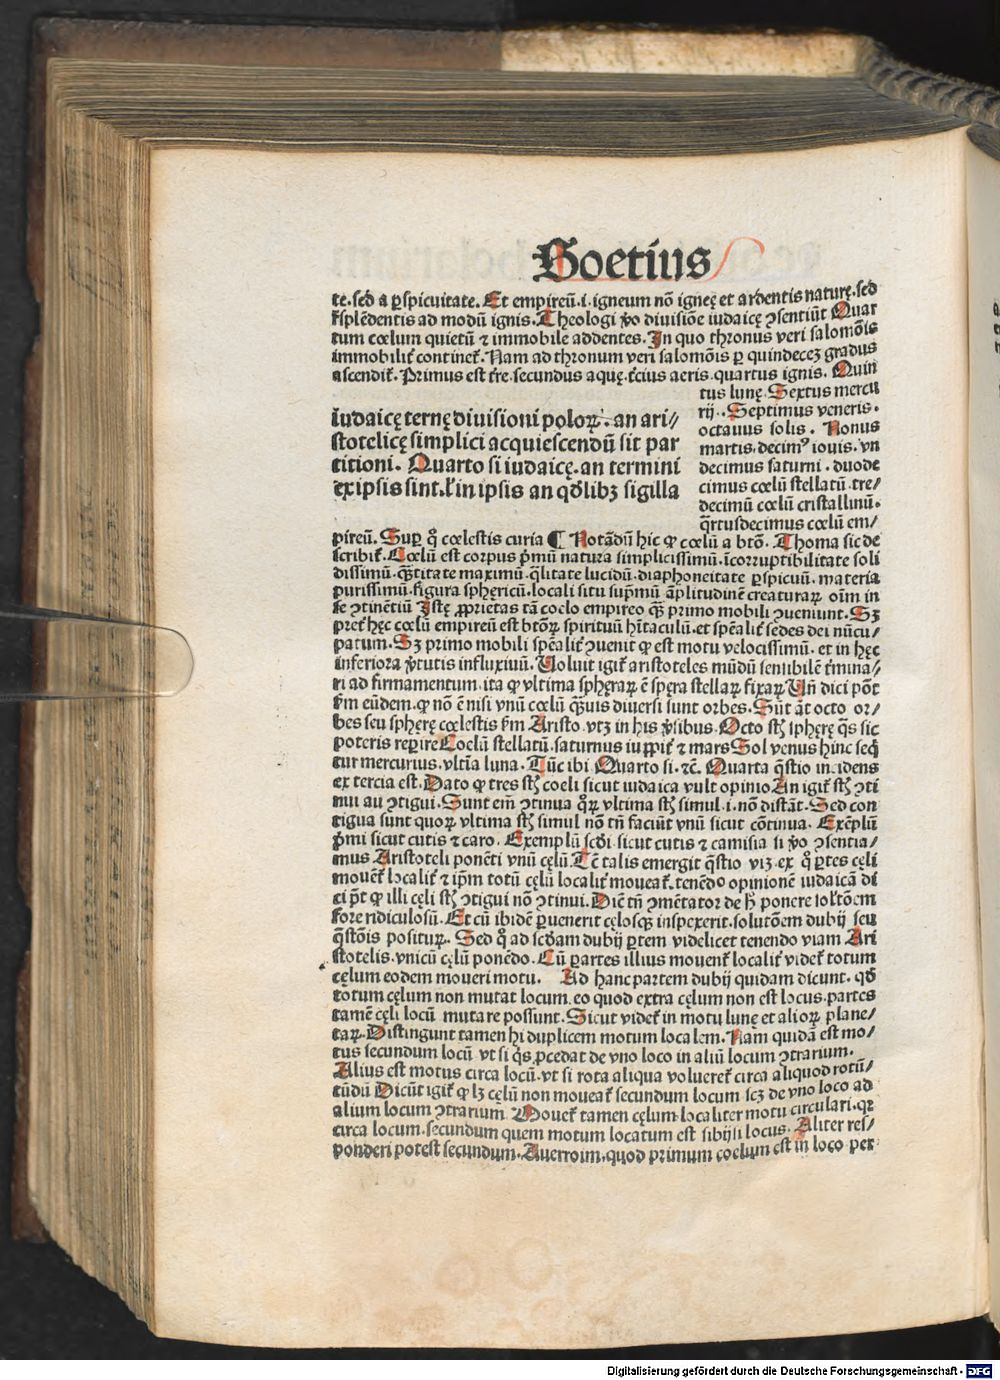 Boetius
te. sed a ꝑspicuitate. Et empireū .i. igneum nō igneę et ardentis naturę. sed
r̄splēdentis ad modū ignis. Theologi ꝟo diuisiōe iudaicę ꝯsentiūt Quar
tum cœlum quietū ⁊ immobile addentes. In quo thronus veri salomōis
immobilit̄ continet̄. Nam ad thronum veri salomōis ꝑ quindeceꝫ gradus
ascendit̄. Primus est t̄re. secundus aquę. t̄cius aeris. quartus ignis. Quin
tus lunę. Sextus mercu
rij. Septimus veneris.
octauus solis. Nonus
martis. decimꝰ iouis. vn
decimus saturni. duode
cimus cœlū stellatū. tre/
decimū cœlū cristallinū.
q̄rtusdecimus cœlū em/
Iudaicę ternę diuisioni poloꝝ. an ari//
stotelicę simplici acquiescendū sit par
titioni. Quarto si iudaicę. an termini
ex ipsis sint. ł in ipsis an qd̄libꝫ sigilla
pireū. Suꝑ q̊ cœlestis curia ¶ Notādū hic ꝙ cœlū a btō. Thoma sic de
scribit̄. Cœlū est corpus p̄mū natura simplicissimū. īcorruptibilitate soli
dissimū. q̄ꝫtitate maximū. q̄litate lucidū. diaphoneitate ꝑspicuū. materia
purissimū. figura sphęricū. locali situ sup̄mū āplitudinē creaturaꝝ oīm in
se ꝯtinētiū Istę ꝓprietas tā coelo empireo q̄ꝫ primo mobili ꝯueniunt. Sꝫ
pret̄ hęc cœlū empireū est btōꝝ spirituū hītaculū. et spēalit̄ sedes dei nūcu/
patum. Sꝫ primo mobili spēalit̄ ꝯuenit ꝙ est motu velocissimū. et in hęc
inferiora ꝟtutis influxiuū. Voluit igit̄ aristoteles mūdū sensibilē t̄mina/
ri ad firmamentum. ita ꝙ vltima sphęraꝝ ē spęra stellaꝝ fixaꝝ Vn̄ dici pōt
ẜm eūdem. ꝙ nō ē nisi vnū cœlū q̄ꝫuis diuersi sunt orbes. Sūt āt octo or/
bes seu sphęrę cœlestis ẜm Aristo. vtꝫ in his ꝟsibus. Octo st̄ sphęrę q̄s sic
poteris rep̄ire Coelū stellatū. saturnus iuppit̄ ⁊ mars Sol venus hinc seq̄
tur mercurius. vltīa luna. Tūc ibi Quarto si. ⁊c̄. Quarta q̄stio incidens
ex tercia est. Dato ꝙ tres st̄ coeli sicut iudaica vult opinio An igit̄ st̄ ꝯti
nui au ꝯtigui. Sunt em̄ ꝯtinua q̊ꝝ vltima st̄ simul. i. nō distāt. Sed con
tigua sunt quoꝝ vltima st̄ simul nō tn̄ faciūt vnū sicut cōtinua. Exēplū
p̄mi sicut cutis ⁊ caro. Exemplū scd̄i sicut cutis ⁊ camisia si ꝟo ꝯsentia/
mus Aristoteli ponēti vnū cęlū. Tc̄ talis emergit q̄stio viꝫ ex q̊ ꝑtes cęli
mouēt̄ localit̄ ⁊ ip̄m totū cęlū localit̄ moueat̄. tenēdo opinionē iudaicā di
ci p̄t ꝙ illi cęli st̄ ꝯtigui nō ꝯtinui. Dic̄ tn̄ ꝯmētator de h̄ ponere solutōem
fore ridiculosū. Et cū ibidē ꝑuenerit cęlosqꝫ inspexerit. solutōem dubij seu
q̄stōis posituꝝ. Sed q̊ ad scd̄am dubij ꝑtem videlicet tenendo viam Ari
stotelis. vnicū cęlū ponēdo. Cū ꝑ partes illius mouent̄ localit̄ videt̄ totum
cęlum eodem moueri motu. Ad hanc partem dubij quidam dicunt. qd̄
totum cęlum non mutat locum. eo quod extra cęlum non est locus. partes
tamē cęli locū mutare possunt. Sicut videt̄ in motu lunę et alioꝝ plane/
taꝝ. Distingunt tamen hi duplicem motum localem. Nam quidā est mo/
tus secundum locū. vt si q̄s ꝓcedat de vno loco in aliū locum ꝯtrarium.
Alius est motus circa locū. vt si rota aliqua volueret̄ circa aliquod rotū/
tūdū Dicūt igit̄ ꝙ lꝫ cęlū non moueat̄ secundum locum scꝫ de vno loco ad
alium locum ꝯtrarium. Mouet̄ tamen cęlum localiter motu circulari. qꝛ
circa locum. secundum quem motum locatum est sibijsi locus. Aliter res/
ponderi potest secundum. Auerroim. quod primum coelum est in loco per
Digitalisierung gefördert durch die Deutsche Forschungsgemeinschaft - DFG